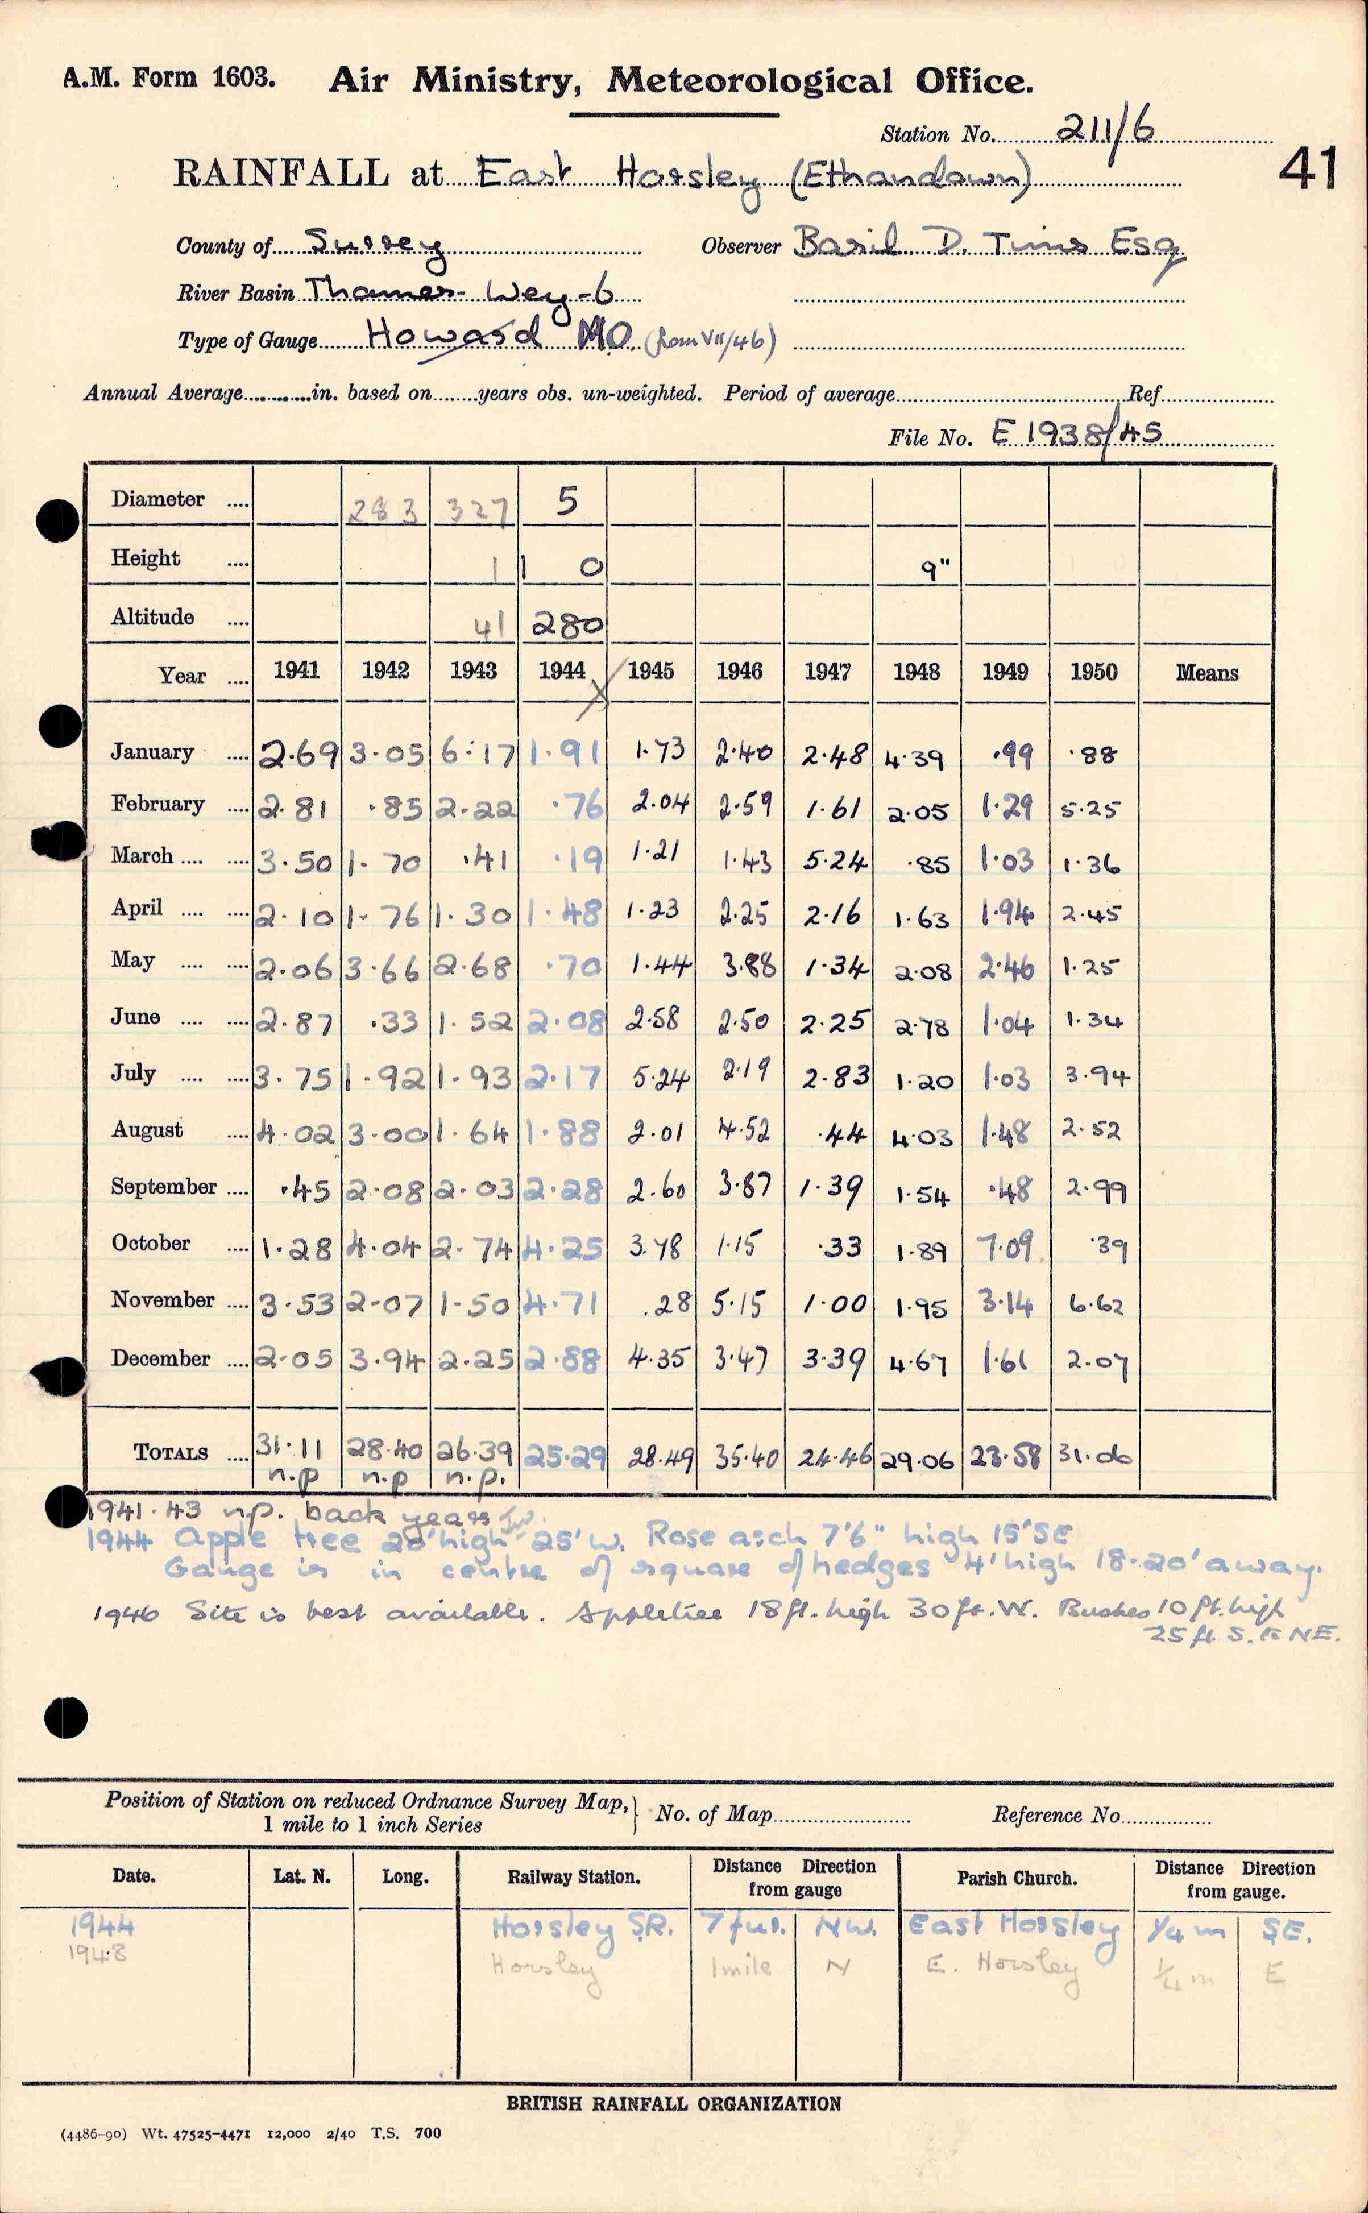 A.M. Form 1603. Air Ministry, Meteorological Office.
Station No. 211/6
41
RAINFALL at East Horsley (Ethandown)
County of Surrey Observer Basil D. Tims Esq
River Basin Thames - Wey - 6
Type of Gauge Howard MO (from VII/46)
Annual Average in. based on years obs. un-weighted. Period of average Ref
File No. E 1938/45
Diameter .... 283 327 5
Height .... 1 1 0 9"
Altitude .... 41 280
Year .... 1941 1942 1943 1944 1945 1946 1947 1948 1949 1950 Means
January .... 2.69 3.05 6.17 1.91 1.73 2.40 2.48 4.39 .99 .88
February .... 2.81 .85 2.22 .76 2.04 2.59 1.61 2.05 1.29 5.25
March .... .... 3.50 1.70 .41 .19 1.21 1.43 5.24 .85 1.03 1.36
April .... .... 2.10 1.76 1.30 1.48 1.23 2.25 2.16 1.63 1.94 2.45
May .... .... 2.06 3.66 2.68 .70 1.44 3.88 1.34 2.08 2.46 1.25
June .... .... 2.87 .33 1.52 2.08 2.58 2.50 2.25 2.78 1.04 1.34
July .... .... 3.75 1.92 1.93 2.17 5.24 2.19 2.83 1.20 1.03 3.94
August .... 4.02 3.00 1.64 1.88 2.01 4.52 .44 4.03 1.48 2.52
September .... .45 2.08 2.03 2.28 2.60 3.87 1.39 1.54 .48 2.99
October .... 1.28 4.04 2.74 4.25 3.78 1.15 .33 1.89 7.09 .39
November .... 3.53 2.07 1.50 4.71 .28 5.15 1.00 1.95 3.14 6.62
December .... 2.05 3.94 2.25 2.88 4.35 3.47 3.39 4.67 1.61 2.07
TOTALS .... 31.11 28.40 26.39 25.29 28.49 35.40 24.46 29.06 23.58 31.06
n.p n.p n.p.
1941-43 n.p. back years
1944 Apple tree 20' high 25' W. Rose arch 7'6" high 15' SE
Gauge is in centre of square of hedges 4' high 18-20' away.
1946 Site is best available. Appletree 18 ft. high 30 ft. W. Bushes 10 ft. high
25 ft S. & NE.
Position of Station on reduced Ordnance Survey Map, No. of Map Reference No.
1 mile to 1 inch Series
Date. Lat. N. Long. Railway Station. Distance Direction from gauge Parish Church. Distance Direction from gauge.
1944 Horsley S.R. 7 fur. NW. East Horsley 1/4 m SE.
1948 Horsley 1 mile N E. Horsley 1/4 m E
BRITISH RAINFALL ORGANIZATION
(4486-90) Wt. 47525-4471 12,000 2/40 T.S. 700